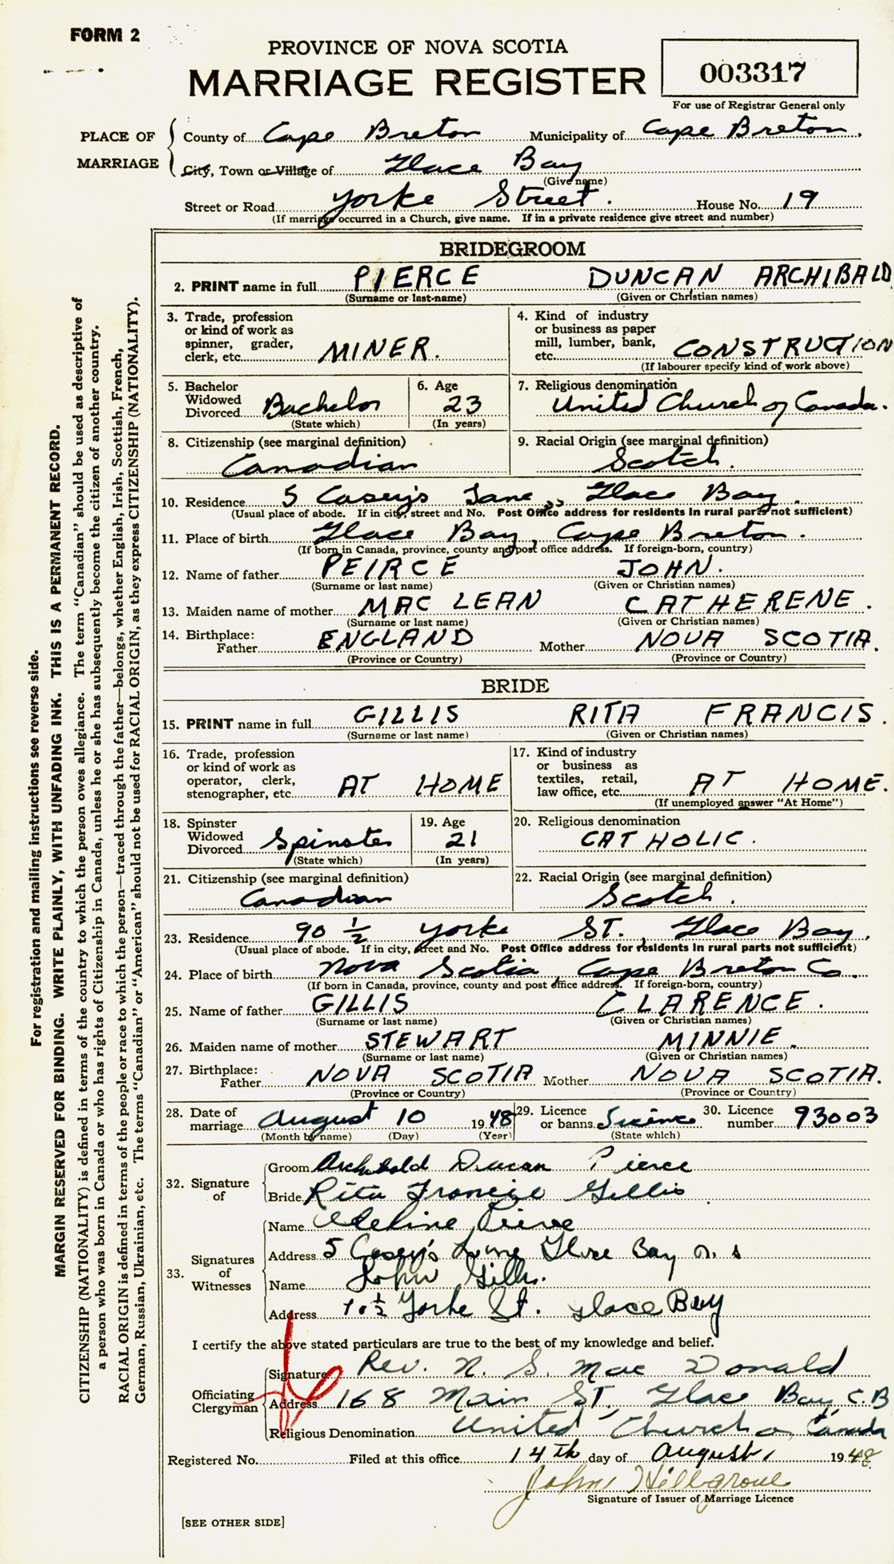 FORM 2
PROVINCE OF NOVA SCOTIA
MARRIAGE REGISTER
003317
For use of Registrar General only
PLACE OF MARRIAGE
County of Cape Breton Municipality of Cape Breton.
City, Town or Village of Glace Bay
(Give name)
Street or Road Yorke Street. House No. 19
(If marriage occurred in a Church, give name. If in a private residence give street and number)
BRIDEGROOM
2. PRINT name in full PIERCE DUNCAN ARCHIBALD
(Surname or last-name) (Given or Christian names)
3. Trade, profession or kind of work as spinner, grader, clerk, etc. MINER.
4. Kind of industry or business as paper mill, lumber, bank, etc. CONSTRUCTION
(If labourer specify kind of work above)
5. Bachelor Widowed Divorced Bachelor
(State which)
6. Age 23
(In years)
7. Religious denomination
United Church of Canada.
8. Citizenship (see marginal definition)
Canadian
9. Racial Origin (see marginal definition)
Scotch.
10. Residence 5 Casey's Lane, Glace Bay.
(Usual place of abode. If in city, street and No. Post Office address for residents in rural parts not sufficient)
11. Place of birth Glace Bay, Cape Breton.
(If born in Canada, province, county and post office address. If foreign-born, country)
12. Name of father PEIRCE JOHN.
(Surname or last name) (Given or Christian names)
13. Maiden name of mother MAC LEAN CATHERENE.
(Surname or last name) (Given or Christian names)
14. Birthplace:
Father ENGLAND Mother NOVA SCOTIA.
(Province or Country) (Province or Country)
BRIDE
15. PRINT name in full GILLIS RITA FRANCIS.
(Surname or last name) (Given or Christian names)
16. Trade, profession or kind of work as operator, clerk, stenographer, etc. AT HOME
17. Kind of industry or business as textiles, retail, law office, etc. AT HOME.
(If unemployed answer "At Home")
18. Spinster Widowed Divorced Spinster
(State which)
19. Age 21
(In years)
20. Religious denomination
CATHOLIC.
21. Citizenship (see marginal definition)
Canadian
22. Racial Origin (see marginal definition)
Scotch.
23. Residence 90 ½ Yorke ST. Glace Bay.
(Usual place of abode. If in city, street and No. Post Office address for residents in rural parts not sufficient)
24. Place of birth Nova Scotia, Cape Breton Co
(If born in Canada, province, county and post office address. If foreign-born, country)
25. Name of father GILLIS CLARENCE.
(Surname or last name) (Given or Christian names)
26. Maiden name of mother STEWART MINNIE.
(Surname or last name) (Given or Christian names)
27. Birthplace:
Father NOVA SCOTIA Mother NOVA SCOTIA.
(Province or Country) (Province or Country)
28. Date of marriage August 10 1948
(Month by name) (Day) (Year)
29. Licence or banns
(State which)
30. Licence number 93003
32. Signature of
Groom Archibald Duncan Pierce
Bride Rita Francis Gillis
33. Signatures of Witnesses
Name Pierce
Address 5 Casey's Lane Glace Bay n. s
Name John Gillis.
Address Yorke St. Glace Bay
I certify the above stated particulars are true to the best of my knowledge and belief.
Officiating Clergyman
Signature Rev. N. S. Mac Donald
Address 168 Main ST. Glace Bay, C.B
Religious Denomination United Church of Canada
Registered No. Filed at this office 14th day of August, 1948
John Hillgrove
Signature of Issuer of Marriage Licence
[SEE OTHER SIDE]
For registration and mailing instructions see reverse side.
MARGIN RESERVED FOR BINDING. WRITE PLAINLY, WITH UNFADING INK. THIS IS A PERMANENT RECORD.
CITIZENSHIP (NATIONALITY) is defined in terms of the country to which the person owes allegiance. The term "Canadian" should be used as descriptive of
a person who was born in Canada or who has rights of Citizenship in Canada, unless he or she has subsequently become the citizen of another country.
RACIAL ORIGIN is defined in terms of the people or race to which the person—traced through the father—belongs, whether English, Irish, Scottish, French,
German, Russian, Ukrainian, etc. The terms "Canadian" or "American" should not be used for RACIAL ORIGIN, as they express CITIZENSHIP (NATIONALITY).